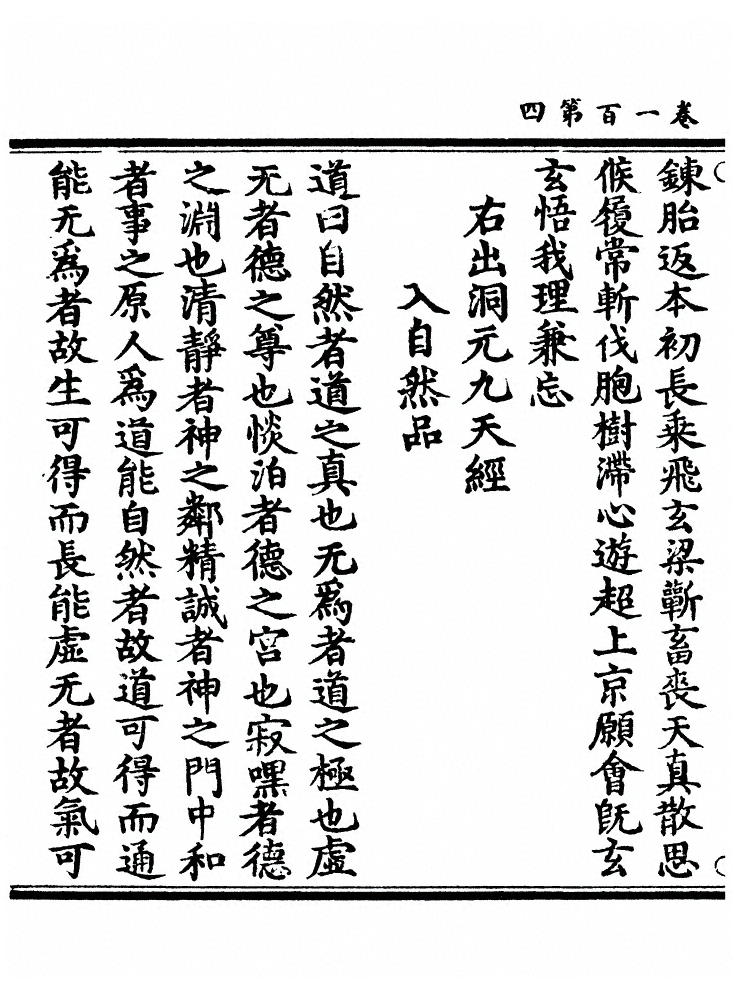 卷一百第四
鍊胎返本初長乘飛玄梁蘄畜喪天真散思
候履常斬伐胞樹滯心遊超上京願會旣玄
玄悟我理兼忘
右出洞元九天經
入自然品
道曰自然者道之真也无爲者道之極也虛
无者德之尊也惔泊者德之宮也寂嘿者德
之淵也清靜者神之鄰精誠者神之門中和
者事之原人爲道能自然者故道可得而通
能无爲者故生可得而長能虛无者故氣可